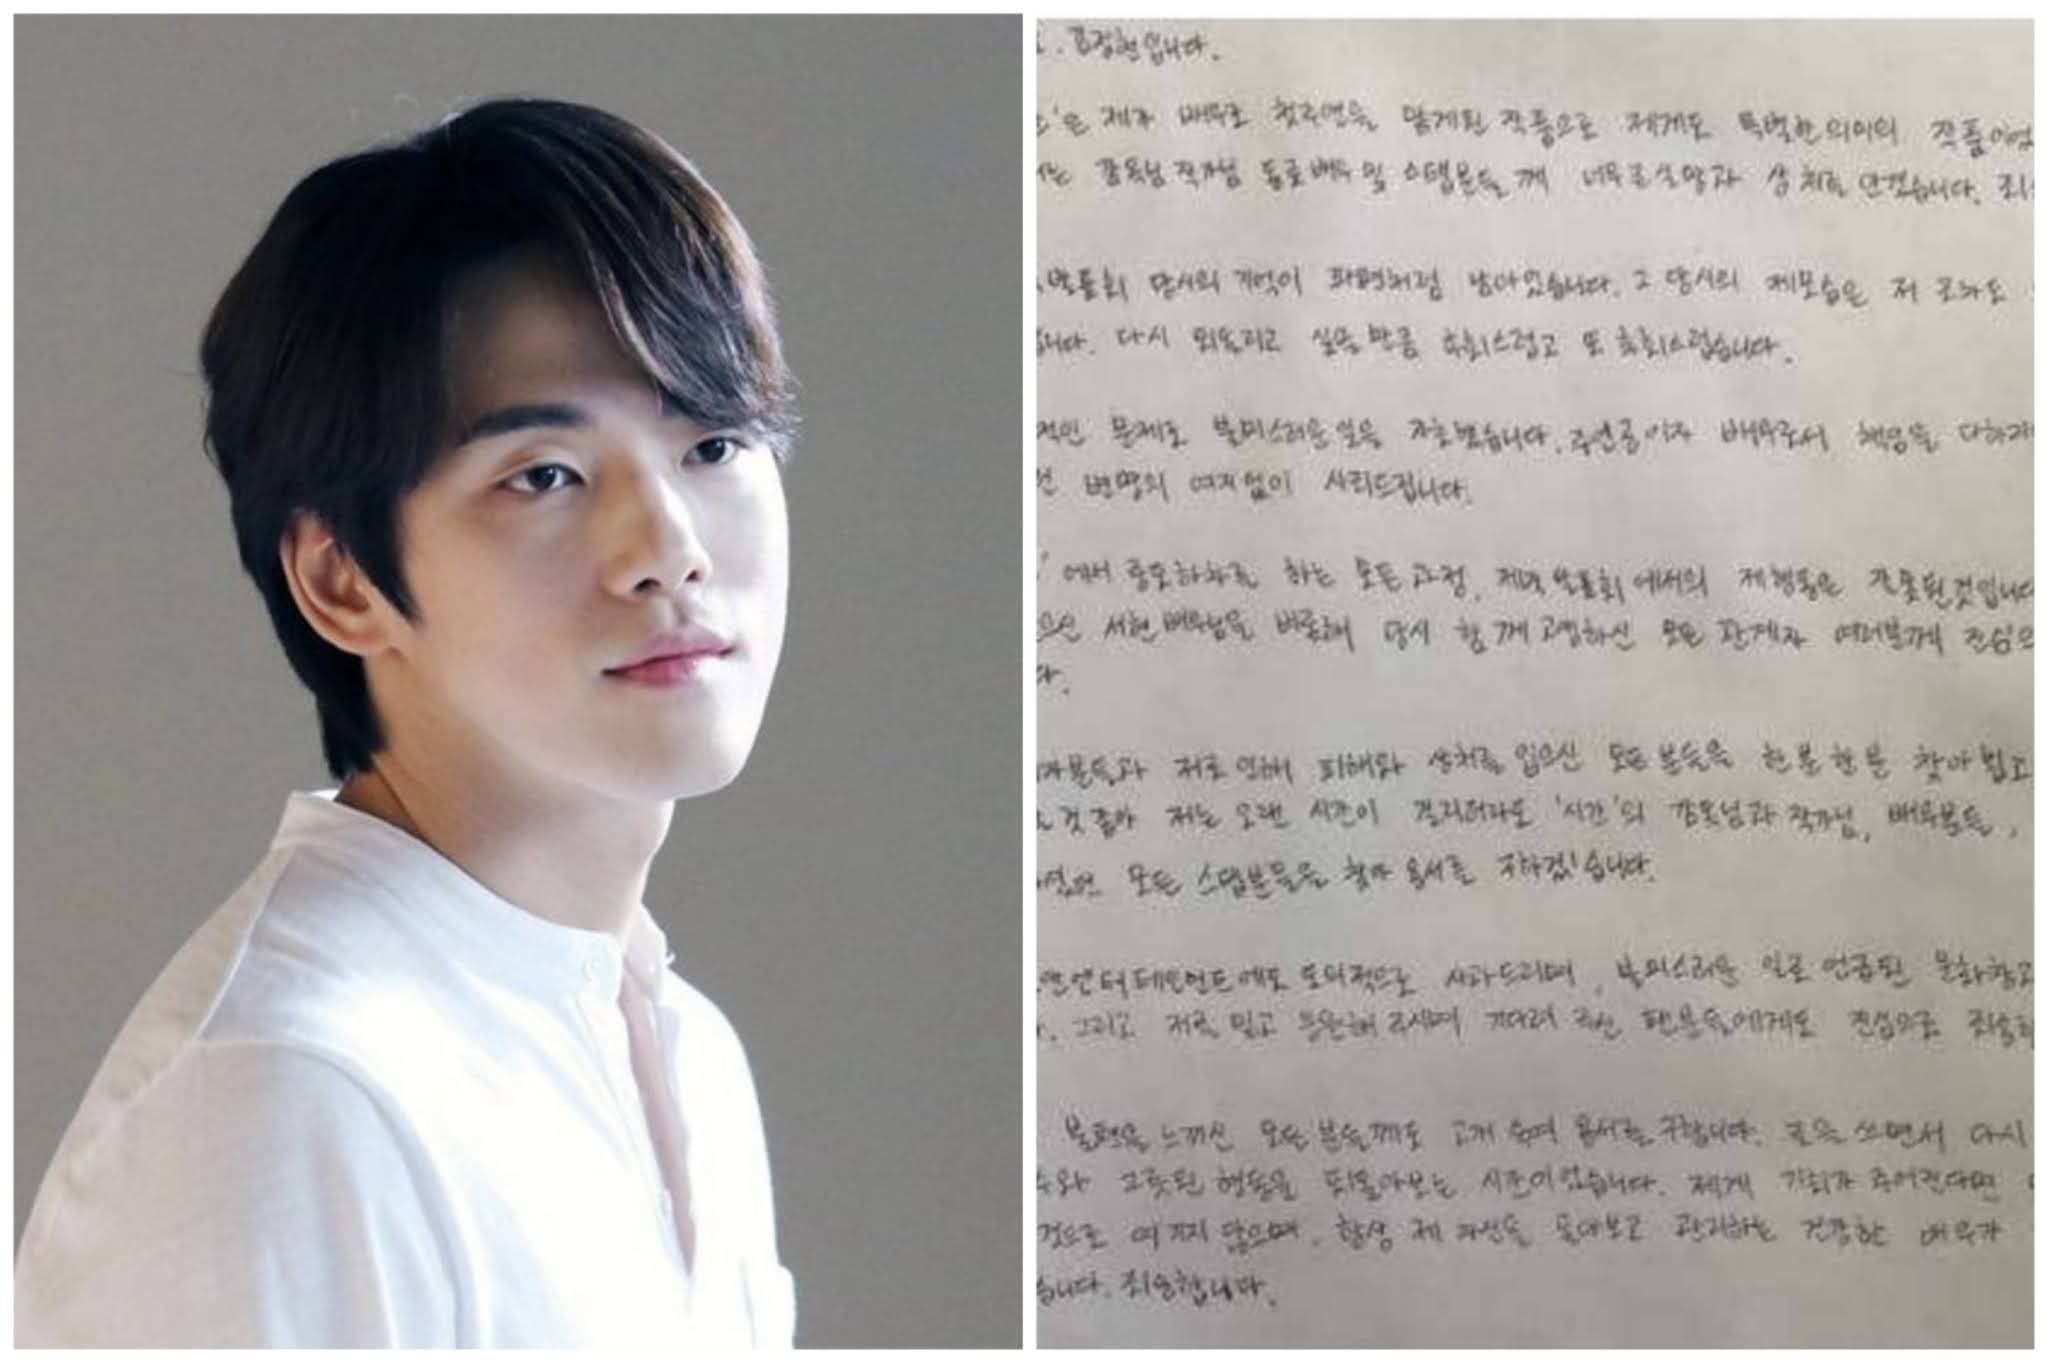 . 김정현입니다.
'은 제가 배우로 첫주연을 맡게된 작품으로 제게도 특별한의미의 작품이었
는 감독님 작가님 동료배우 및 스탭분들께 너무 큰 실망과 상처를 안겼습니다. 죄
발표회 당시의 기억이 파편처럼 남아있습니다. 그 당시의 제모습은 저 조차도
니다. 다시 되돌리고 싶을 만큼 후회스럽고 또 후회스럽습니다.
적인 문제로 불미스러운일을 자초했습니다. 주연공이자 배우로서 책임을 다하지
변명의 여지없이 사죄드립니다.
' 에서 중도하차를 하는 모든 과정, 제작발표회에서의 제행동은 잘못된것입니다
으신 서현배우님을 비롯해 당시 함께 고생하신 모든 관계자 여러분께 진심으
다.
자분들과 저로 인해 피해와 상처를 입으신 모든분들을 한분한분 찾아 뵙고
것 같아 저는 오랜 시간이 걸리더라도 '시간'의 감독님과 작가님, 배우분들,
모든 스탭분들을 찾아 용서를 구하겠습니다.
앤엔터테인먼트에도 도의적으로 사과드리며, 불미스러운 일로 언급된 문화창고
. 그리고 저를 믿고 응원해 주시며 기다려 주신 팬분들에게도 진심으로 죄송하
불편을 느끼신 모든분들께도 고개 숙여 용서를 구합니다. 글을 쓰면서 다시
수와 그릇된 행동을 되돌아보는 시간이었습니다. 제게 기회가 주어진다면
것으로 여기지 않으며, 항상 제 자신을 돌아보고 관리하는 건강한 배우가
습니다. 죄송합니다.